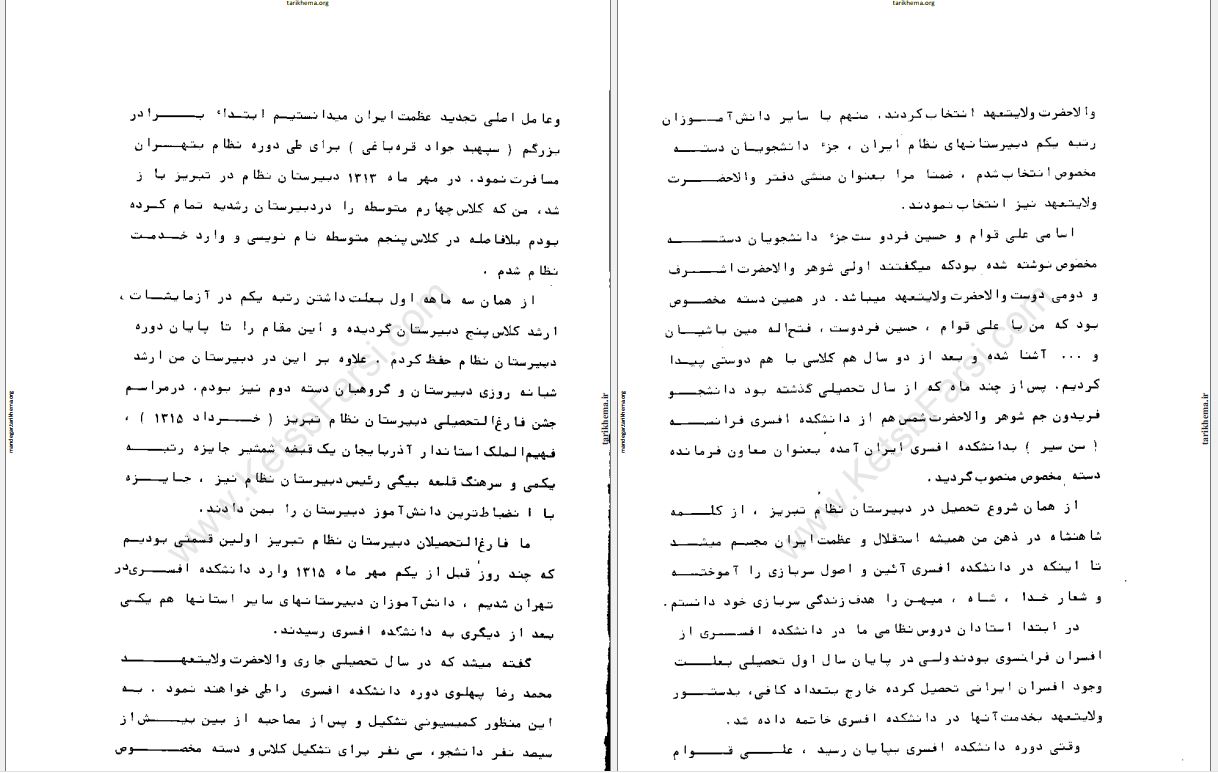 tarikhema.org
وعامل اصلی تجدید عظمت ایران میدانستیم ابتداء برادر
بزرگم ( سپهبد جواد قره‌باغی ) برای طی دوره نظام بتهران
مسافرت نمود. در مهر ماه ۱۳۱۳ دبیرستان نظام در تبریز باز
شد، من که کلاس چهارم متوسطه را دردبیرستان رشدیه تمام کرده
بودم بلافاصله در کلاس پنجم متوسطه نام نویسی و وارد خدمت
نظام شدم .
از همان سه ماهه اول بعلت داشتن رتبه یکم در آزمایشات ،
ارشد کلاس پنج دبیرستان گردیده و این مقام را تا پایان دوره
دبیرستان نظام حفظ کردم . علاوه بر این در دبیرستان من ارشد
شبانه روزی دبیرستان و گروهبان دسته دوم نیز بودم. درمراسم
جشن فارغ‌التحصیلی دبیرستان نظام تبریز ( خرداد ۱۳۱۵ ) ،
فهیم‌الملک استاندار آذربایجان یک قبضه شمشیر جایزه رتبه
یکمی و سرهنگ قلعه بیگی رئیس دبیرستان نظام نیز ، جایزه
با انضباط‌ترین دانش‌آموز دبیرستان را بمن دادند.
ما فارغ‌التحصیلان دبیرستان نظام تبریز اولین قسمتی بودیم
که چند روز قبل از یکم مهر ماه ۱۳۱۵ وارد دانشکده افسری‌در
تهران شدیم ، دانش‌آموزان دبیرستانهای سایر استانها هم یکی
بعد از دیگری به دانشکده افسری رسیدند.
گفته میشد که در سال تحصیلی جاری والاحضرت ولایتعهد
محمد رضا پهلوی دوره دانشکده افسری راطی خواهند نمود . به
این منظور کمیسیونی تشکیل و پس‌از مصاحبه از بین بیش‌از
سیصد نفر دانشجو، سی نفر برای تشکیل کلاس و دسته مخصوص
mandegar.tarikhema.org
tarikhema.ir
www.KetabFarsi.com
tarikhema.org
والاحضرت ولایتعهد انتخاب کردند. منهم با سایر دانش‌آموزان
رتبه یکم دبیرستانهای نظام ایران ، جزء دانشجویان دسته
مخصوص انتخاب شدم ، ضمنا مرا بعنوان منشی دفتر والاحضرت
ولایتعهد نیز انتخاب نمودند.
اسامی علی قوام و حسین فردوست جزء دانشجویان دسته
مخصوص نوشته شده بودکه میگفتند اولی شوهر والاحضرت اشرف
و دومی دوست والاحضرت ولایتعهد میباشد. در همین دسته مخصوص
بود که من با علی قوام ، حسین فردوست ، فتح‌اله مین باشیان
و ... آشنا شده و بعد از دو سال هم کلاسی با هم دوستی پیدا
کردیم. پس‌از چند ماه که از سال تحصیلی گذشته بود دانشجو
فریدون جم شوهر والاحضرت شمس هم از دانشکده افسری فرانسه
( سن سیر ) بدانشکده افسری ایران آمده بعنوان معاون فرمانده
دسته مخصوص منصوب گردید.
از همان شروع تحصیل در دبیرستان نظام تبریز ، از کلمه
شاهنشاه در ذهن من همیشه استقلال و عظمت ایران مجسم میشد
تا اینکه در دانشکده افسری آئین و اصول سربازی را آموخته
و شعار خدا ، شاه ، میهن را هدف زندگی سربازی خود دانستم.
در ابتدا استادان دروس نظامی ما در دانشکده افسری از
افسران فرانسوی بودندولی در پایان سال اول تحصیلی بعلت
وجود افسران ایرانی تحصیل کرده خارج بتعداد کافی، بدستور
ولایتعهد بخدمت آنها در دانشکده افسری خاتمه داده شد.
وقتی دوره دانشکده افسری بپایان رسید ، علی قوام
mandegar.tarikhema.org
tarikhema.ir
www.KetabFarsi.com